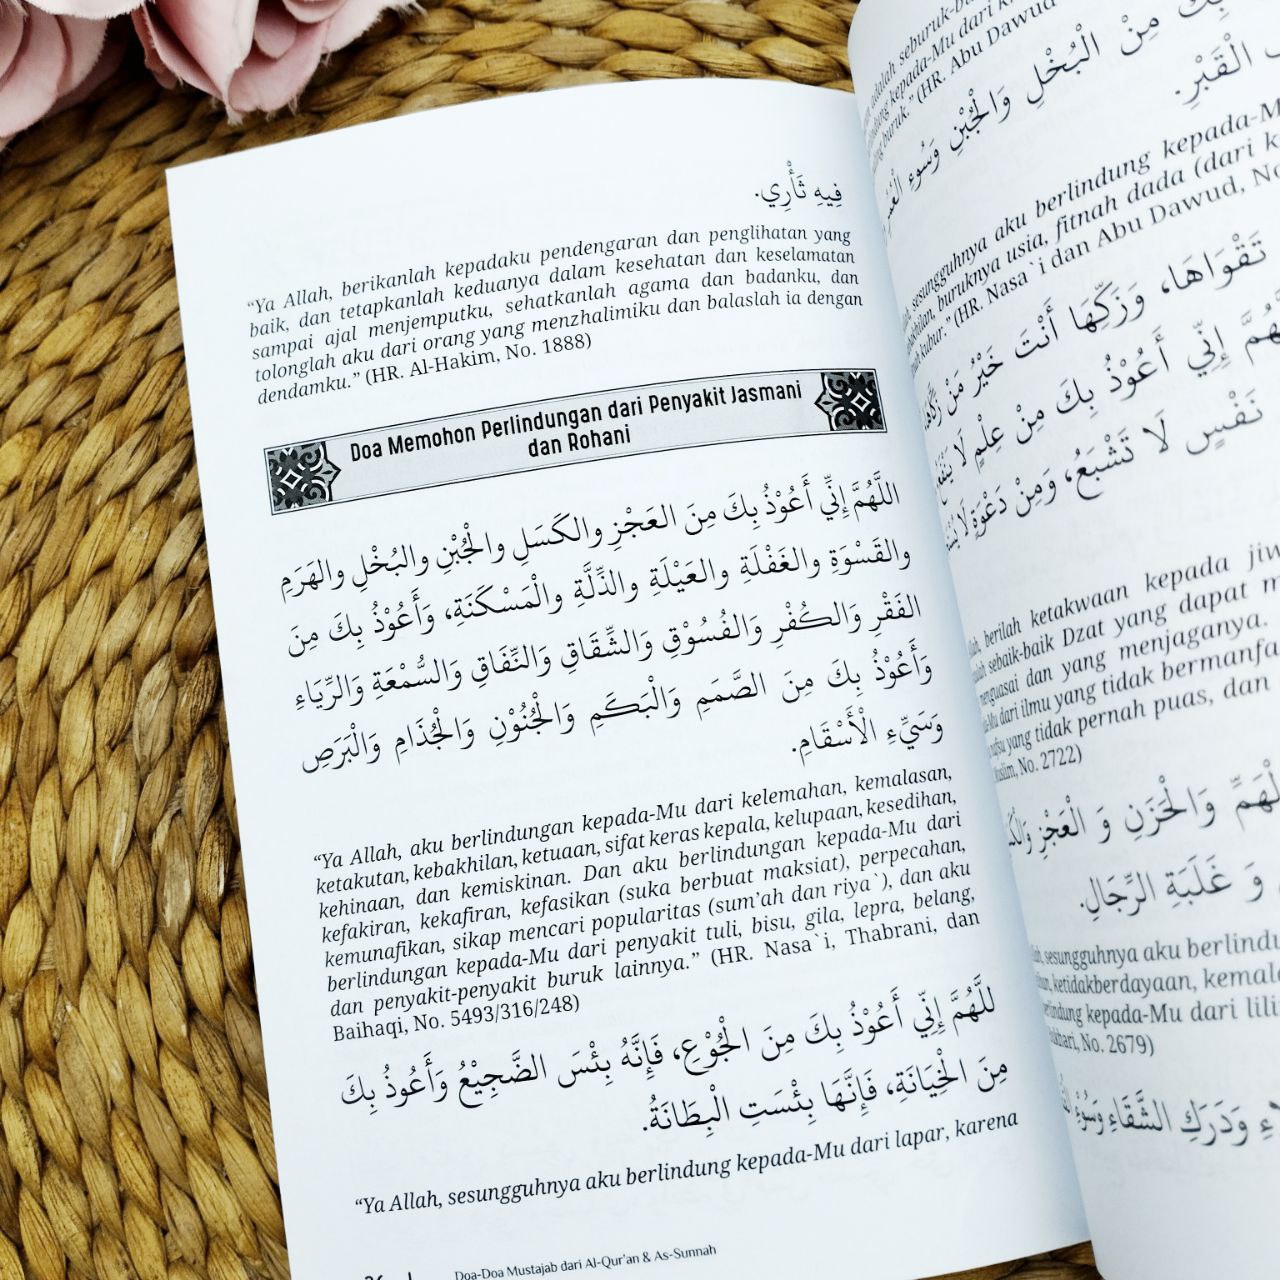 فِيهِ ثَأْرِي.
“Ya Allah, berikanlah kepadaku pendengaran dan penglihatan yang
baik, dan tetapkanlah keduanya dalam kesehatan dan keselamatan
sampai ajal menjemputku, sehatkanlah agama dan badanku, dan
tolonglah aku dari orang yang menzhalimiku dan balaslah ia dengan
dendamku.” (HR. Al-Hakim, No. 1888)
Doa Memohon Perlindungan dari Penyakit Jasmani
dan Rohani
اللَّهُمَّ إِنِّي أَعُوْذُ بِكَ مِنَ العَجْزِ والكَسَلِ والْجُبْنِ والبُخْلِ والهَرَمِ
والقَسْوَةِ والغَفْلَةِ والعَيْلَةِ والذِّلَّةِ والْمَسْكَنَةِ، وَأَعُوْذُ بِكَ مِنَ
الفَقْرِ وَالكُفْرِ وَالفُسُوْقِ وَالشِّقَاقِ وَالنِّفَاقِ وَالسُّمْعَةِ وَالرِّيَاءِ
وَأَعُوْذُ بِكَ مِنَ الصَّمَمِ وَالْبَكَمِ وَالْجُنُوْنِ وَالْجُذَامِ وَالْبَرَصِ
وَسَيِّءِ الْأَسْقَامِ.
“Ya Allah, aku berlindungan kepada-Mu dari kelemahan, kemalasan,
ketakutan, kebakhilan, ketuaan, sifat keras kepala, kelupaan, kesedihan,
kehinaan, dan kemiskinan. Dan aku berlindungan kepada-Mu dari
kefakiran, kekafiran, kefasikan (suka berbuat maksiat), perpecahan,
kemunafikan, sikap mencari popularitas (sum’ah dan riya`), dan aku
berlindungan kepada-Mu dari penyakit tuli, bisu, gila, lepra, belang,
dan penyakit-penyakit buruk lainnya.” (HR. Nasa`i, Thabrani, dan
Baihaqi, No. 5493/316/248)
للَّهُمَّ إِنِّي أَعُوْذُ بِكَ مِنَ الْجُوْعِ، فَإِنَّهُ بِئْسَ الضَّجِيْعُ وَأَعُوذُ بِكَ
مِنَ الْخِيَانَةِ، فَإِنَّهَا بِئْسَتِ الْبِطَانَةُ.
“Ya Allah, sesungguhnya aku berlindung kepada-Mu dari lapar, karena
Doa-Doa Mustajab dari Al-Qur’an & As-Sunnah
adalah seburuk-bu
kepada-Mu dari
buruk.” (HR. Abu Dawud
مِنْ الْبُخْلِ وَالْجُبْنِ وَسُوءِ
الْقَبْرِ.
sesungguhnya aku berlindung kepada-M
buruknya usia, fitnah dada (dari k
kubur.” (HR. Nasa`i dan Abu Dawud, No
تَقْوَاهَا، وَزَكِّهَا أَنْتَ خَيْرُ مَنْ زَكَّاهَا
إِنِّي أَعُوْذُ بِكَ مِنْ عِلْمٍ لَا
نَفْسٍ لَا تَشْبَعُ، وَمِنْ دَعْوَةٍ لَا
berilah ketakwaan kepada jiw
sebaik-baik Dzat yang dapat m
menguasai dan yang menjaganya.
dari ilmu yang tidak bermanfa
nafsu yang tidak pernah puas, dan
Muslim, No. 2722)
وَالْحَزَنِ وَ الْعَجْزِ
وَ غَلَبَةِ الرِّجَالِ.
sesungguhnya aku berlindu
ketidakberdayaan, kemala
kepada-Mu dari lili
No. 2679)
وَدَرَكِ الشَّقَاءِ وَسُوْءِ